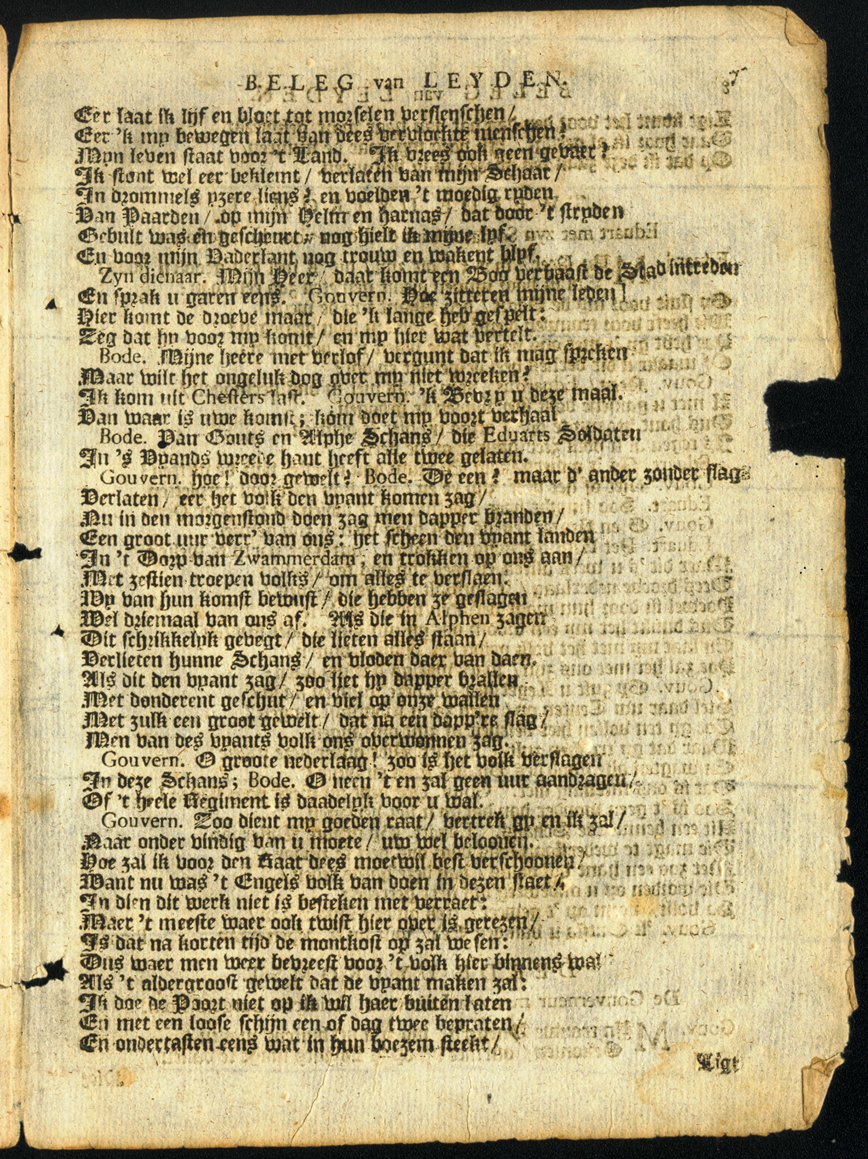 BELEG van LEYDEN. 7
Eer laat ik lijf en bloet tot morselen verslenschen/
Eer 'k my bewegen laat van dees vervlockte menschen?
Myn leven staat voor 't Land. Ik vrees ook geen gevaer?
Ik stont wel eer beklemt/ verlaten van mijn Schaar/
In drommels yzere liens? en voelden 't moedig ryden
Van Paarden/ op mijn Helm en harnas/ dat door 't stryden
Gebult was en gescheurt/ nog hielt ik mijne lyf
En voor mijn Vaderlant nog trouw en wakent blyf.
Zyn dienaar. Mijn Heer/ daar komt een Boo verbaast de Stad intreden
En sprak u garen eens. Gouvern. Hoe zitteren mijne leden!
Hier komt de droeve maar/ die 'k lange heb gespelt:
Zeg dat hy voor my komt/ en my hier wat vertelt.
Bode. Mijne heere met verlof/ vergunt dat ik mag spreken
Maar wilt het ongelijk dog over my niet wreeken?
Ik kom uit Chesters last. Gouvern. 'k Bevry u deze maal.
Van waar is uwe komst; kom doet my voort verhaal
Bode. Van Gouts en Alphe Schans/ die Eduarts Soldaten
In 's Vyands wreede hant heeft alle twee gelaten.
Gouvern. hoe! door gewelt? Bode. De een? maar d' ander zonder slag
Verlaten/ eer het volk den vyant komen zag/
Nu in den morgenstond doen zag men dapper branden/
Een groot uur verr' van ons: het scheen den vyant landen
In 't Dorp van Zwammerdam, en trokken op ons aan/
Met zestien troepen volks/ om alles te verslaen:
Wy van hun komst bewust/ die hebben ze geslagen
Wel driemaal van ons af. Als die in Alphen zagen
Dit schrikkelyk gevegt/ die lieten alles staan/
Verlieten hunne Schans/ en vloden daer van daen.
Als dit den vyant zag/ zoo liet hy dapper brallen
Met donderent geschut/ en viel op onze wallen
Met zulk een groot gewelt/ dat na een dapp're slag/
Men van des vyants volk ons overwonnen zag.
Gouvern. O groote nederlaag! zoo is het volk verslagen
In deze Schans; Bode. O neen 't en zal geen uur aandragen/
Of 't heele Regiment is daadelyk voor u wal.
Gouvern. Zoo dient my goeden raat/ vertrek gy en ik zal/
Naar onder vindig van u moete/ uw wel beloonen.
Hoe zal ik voor den Raat dees moetwil best verschoonen/
Want nu was 't Engels volk van doen in dezen staet/
In dien dit werk niet is besteken met verraet:
Maer 't meeste waer ook twist hier over is gerezen/
Is dat na korten tijd de montkost op zal wesen:
Dus waer men weer bevreest voor 't volk hier binnens wal
Als 't aldergroost gewelt dat de vyant maken zal:
Ik doe de Poort niet op ik wil haer buiten laten
En met een loose schijn een of dag twee bepraten/
En ondertasten eens wat in hun boezem steekt/
Ligt